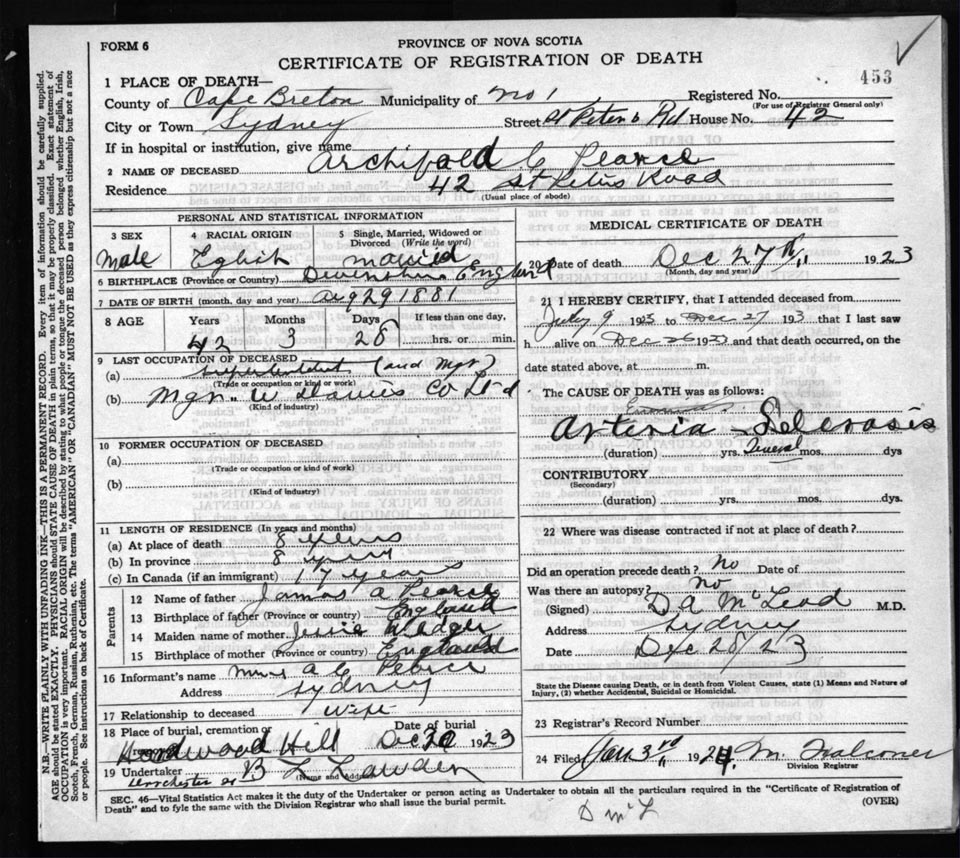 FORM 6
PROVINCE OF NOVA SCOTIA
CERTIFICATE OF REGISTRATION OF DEATH
453
1 PLACE OF DEATH—
County of Cape Breton Municipality of No 1 Registered No.
(For use of Registrar General only)
City or Town Sydney Street St Peters Rd House No. 42
If in hospital or institution, give name
2 NAME OF DECEASED Archibald C Pearce
Residence 42 St Peters Road
(Usual place of abode)
PERSONAL AND STATISTICAL INFORMATION
3 SEX 4 RACIAL ORIGIN 5 Single, Married, Widowed or Divorced (Write the word)
Male English married
6 BIRTHPLACE (Province or Country) Devonshire England
7 DATE OF BIRTH (month, day and year) Aug 29 1881
8 AGE Years Months Days If less than one day,
42 3 28 hrs. or min.
9 LAST OCCUPATION OF DECEASED
(a) (and Mgr)
(Trade or occupation or kind of work)
(b) Mgr. W Davies Co Ltd
(Kind of industry)
10 FORMER OCCUPATION OF DECEASED
(a)
(Trade or occupation or kind of work)
(b)
(Kind of industry)
11 LENGTH OF RESIDENCE (In years and months)
(a) At place of death 8 years
(b) In province 8 years
(c) In Canada (if an immigrant) 17 years
Parents
12 Name of father James A Pearce
13 Birthplace of father (Province or country) England
14 Maiden name of mother Jessie
15 Birthplace of mother (Province or country) England
16 Informant's name Mrs A C Pearce
Address Sydney
17 Relationship to deceased Wife
18 Place of burial, cremation or Date of burial
Hardwood Hill Dec 30 1923
19 Undertaker B L
(Name and Address)
MEDICAL CERTIFICATE OF DEATH
20 Date of death Dec 27th 1923
(Month, day and year)
21 I HEREBY CERTIFY, that I attended deceased from
July 9 1923 to Dec 27 1923 that I last saw
h alive on Dec 26 1923 and that death occurred, on the
date stated above, at m.
The CAUSE OF DEATH was as follows:
Arteria Sclerosis
(duration) yrs. Several mos. dys
CONTRIBUTORY
(Secondary)
(duration) yrs. mos. dys
22 Where was disease contracted if not at place of death?
Did an operation precede death? No Date of
Was there an autopsy? No
(Signed) D A McLeod M.D.
Address Sydney
Date Dec 28/23
State the Disease causing Death, or in death from Violent Causes, state (1) Means and Nature of Injury, (2) whether Accidental, Suicidal or Homicidal.
23 Registrar's Record Number
24 Filed Jan 3rd 1924 M. Falconer
Division Registrar
SEC. 46—Vital Statistics Act makes it the duty of the Undertaker or person acting as Undertaker to obtain all the particulars required in the "Certificate of Registration of
Death" and to fyle the same with the Division Registrar who shall issue the burial permit.
(OVER)
D McL
N.B.—WRITE PLAINLY WITH UNFADING INK—THIS IS A PERMANENT RECORD. Every item of information should be carefully supplied.
AGE should be stated EXACTLY. PHYSICIANS should STATE CAUSE OF DEATH in plain terms, so that it may be properly classified. Exact statement of
OCCUPATION is very important. RACIAL ORIGIN will be described by stating to what people or tongue the deceased person belonged whether English, Irish,
Scotch, French, German, Russian, Ruthenian, etc. The terms "AMERICAN" OR "CANADIAN" MUST NOT BE USED as they express citizenship but not a race
or people. See instructions on back of Certificate.